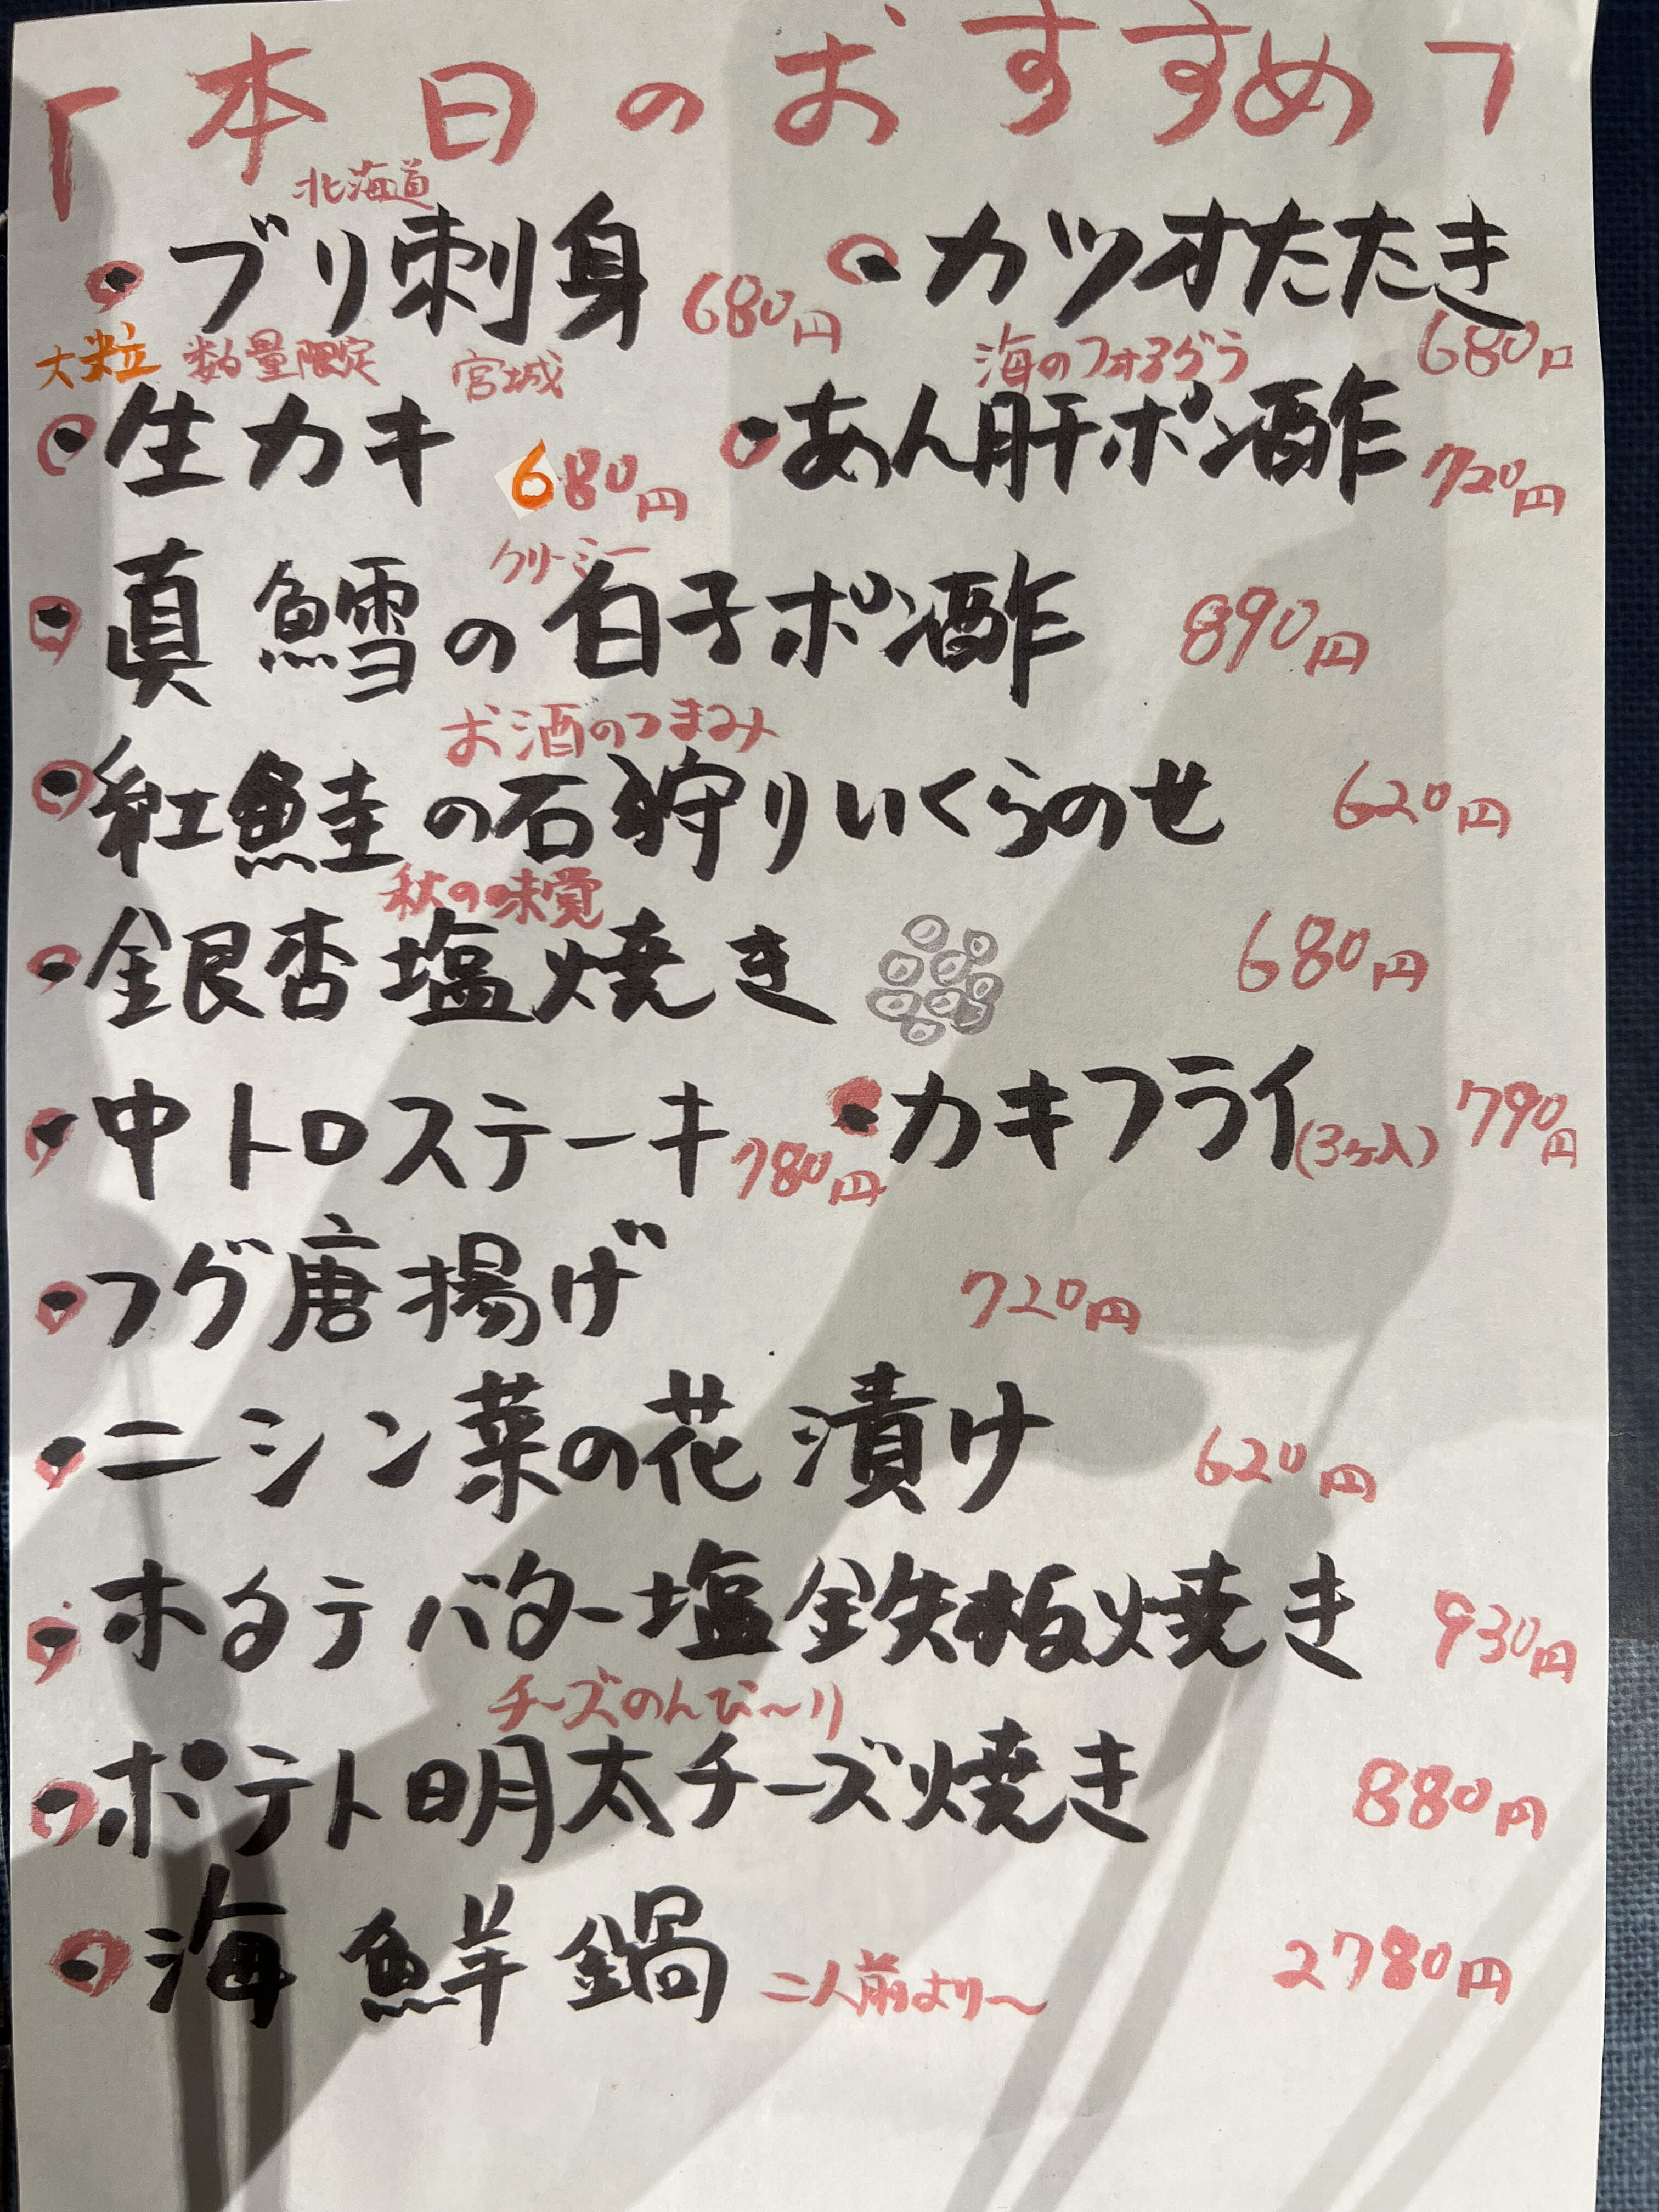 「本日のおすすめ」
北海道
・ブリ刺身 680円 ・カツオたたき 680円
大粒 数量限定 宮城 海のフォアグラ
・生カキ 680円 ・あん肝ポン酢 720円
クリーミー
・真鱈の白子ポン酢 890円
お酒のつまみ
・紅鮭の石狩りいくらのせ 620円
秋の味覚
・銀杏塩焼き 680円
・中トロステーキ 780円 ・カキフライ(3ヶ入) 790円
・フグ唐揚げ 720円
・ニシン菜の花漬け 620円
・ホタテバター塩鉄板焼き 930円
チーズのんび～り
・ポテト明太チーズ焼き 880円
・海鮮鍋 二人前より～ 2780円